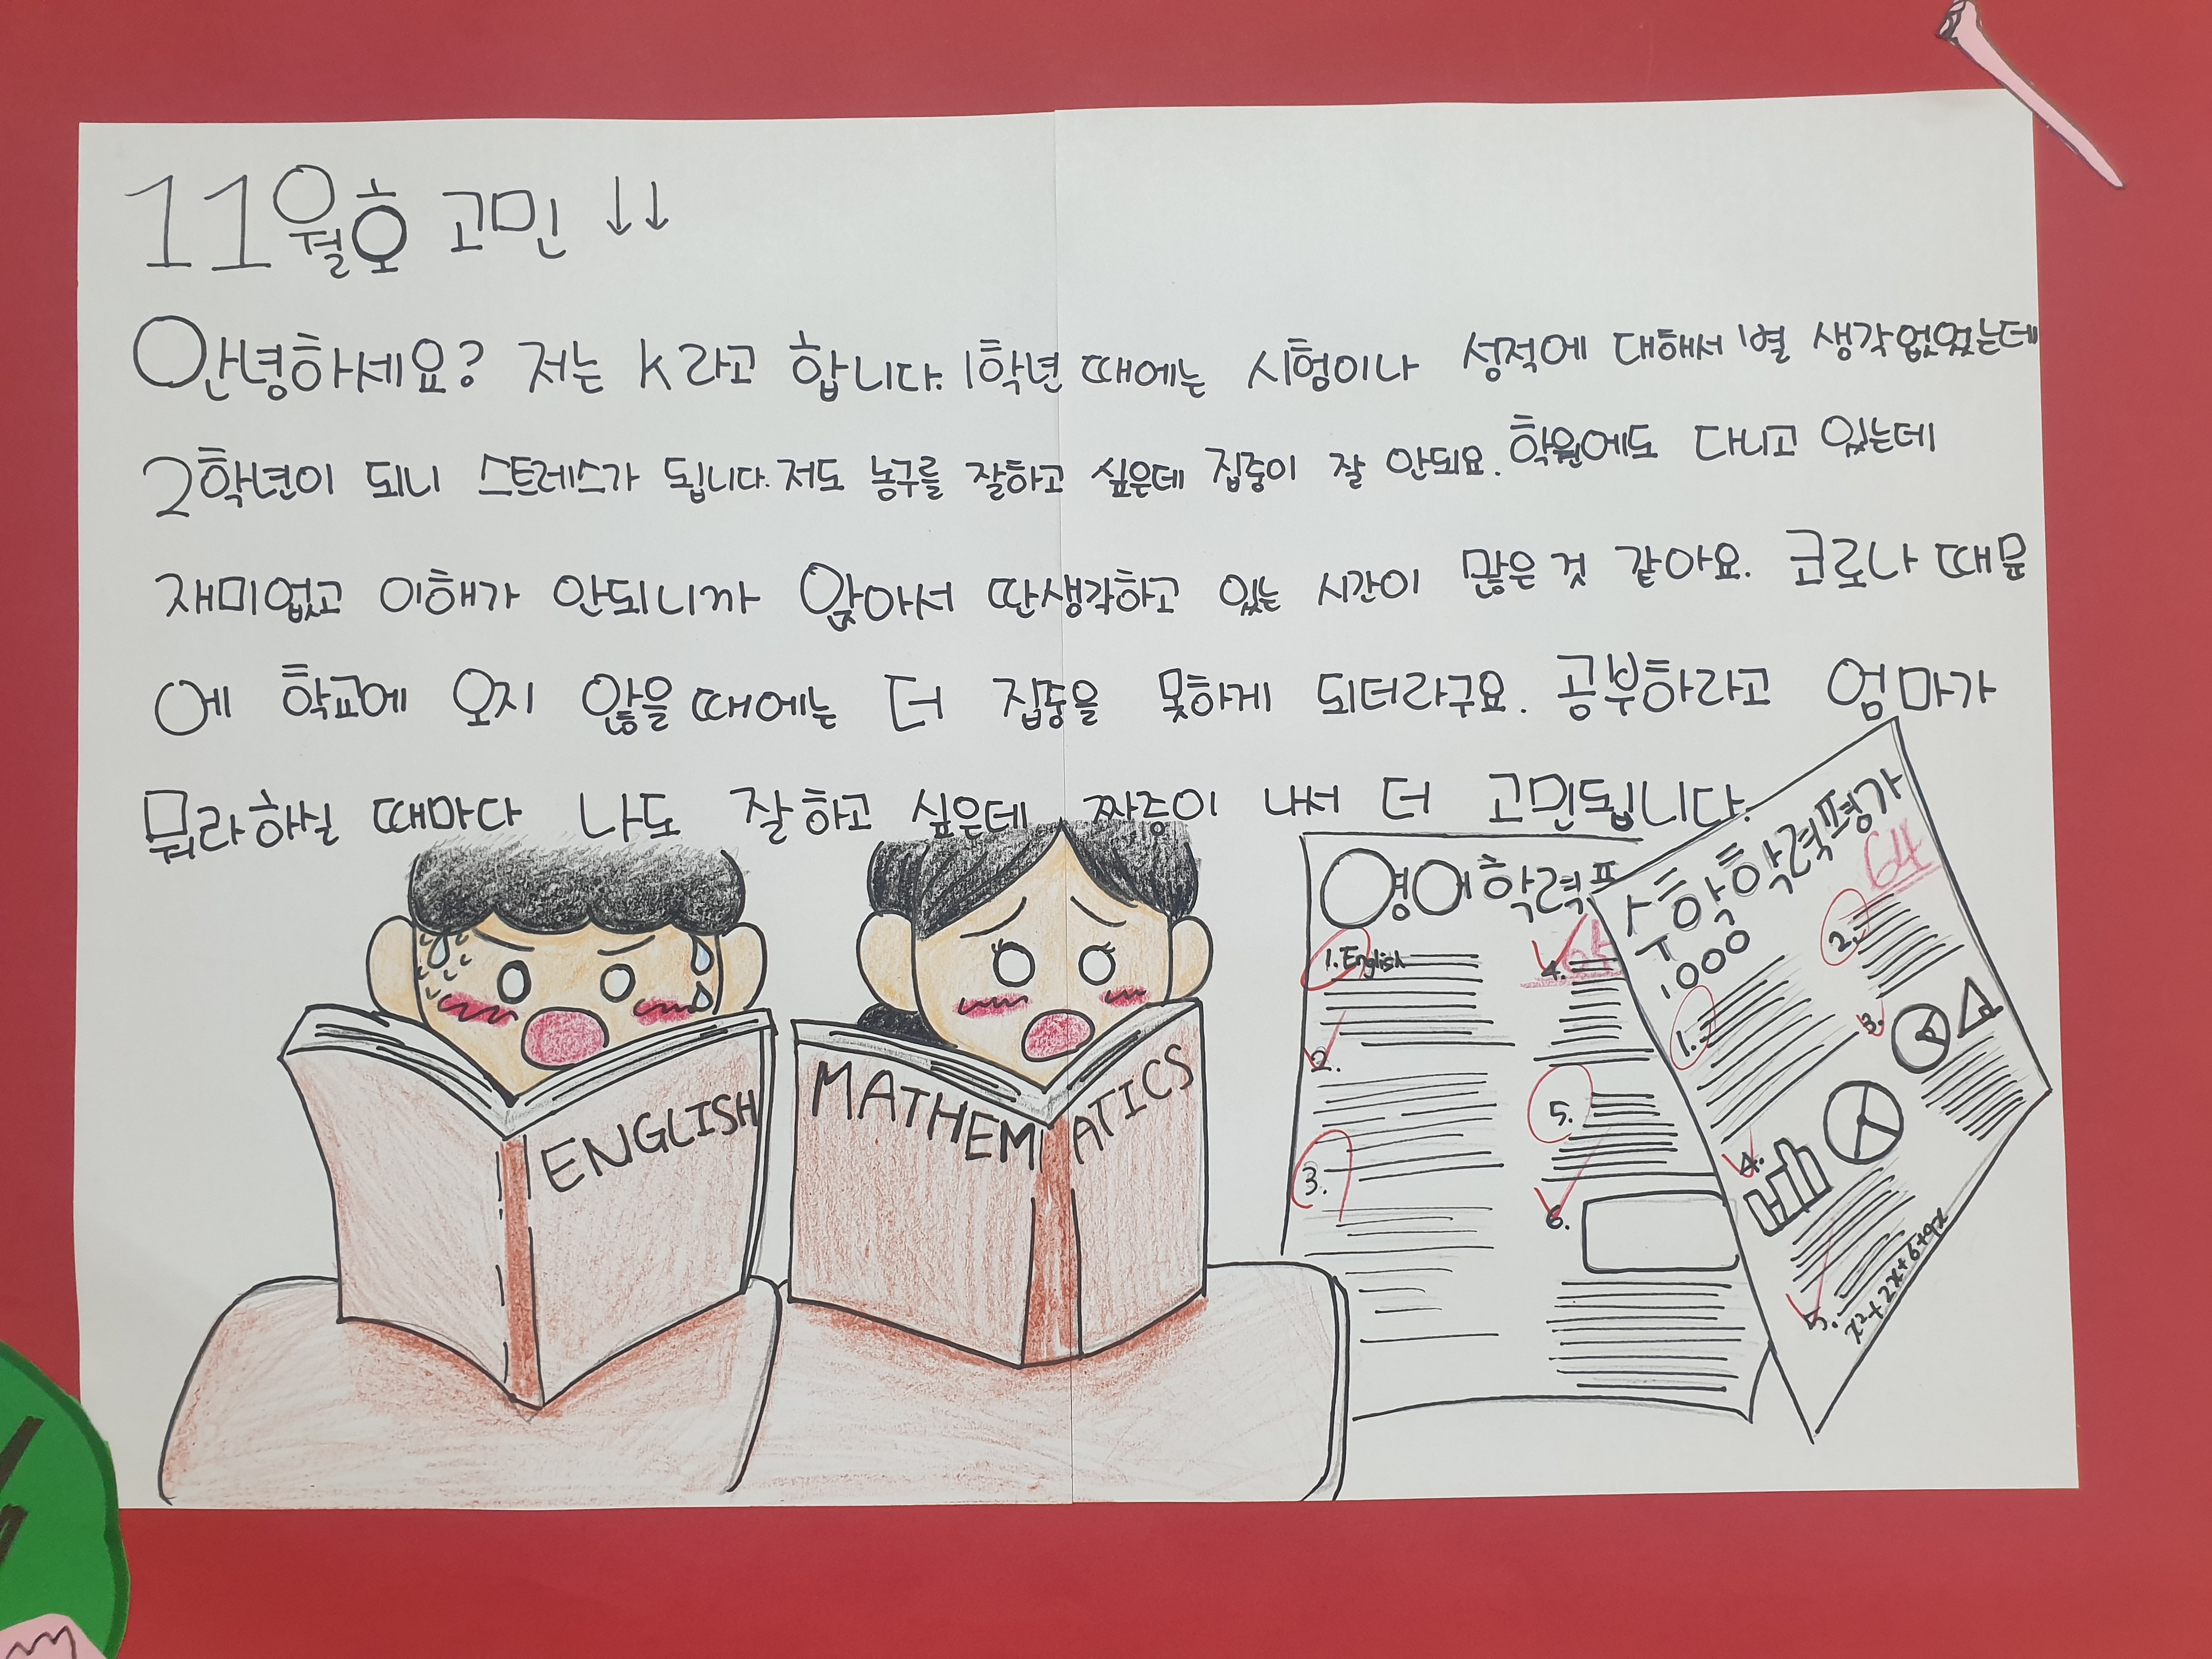 11월호 고민 ↓↓
안녕하세요? 저는 K라고 합니다. 1학년 때에는 시험이나 성적에 대해서 별 생각없었는데
2학년이 되니 스트레스가 됩니다. 저도 농구를 잘하고 싶은데 집중이 잘 안되요. 학원에도 다니고 있는데
재미없고 이해가 안되니까 앉아서 딴생각하고 있는 시간이 많은 것 같아요. 코로나 때문
에 학교에 오지 않을 때에는 더 집중을 못하게 되더라구요. 공부하라고 엄마가
뭐라하실 때마다 나도 잘하고 싶은데 짜증이 나서 더 고민됩니다.
ENGLISH
MATHEMATICS
영어학력
1. English
2.
3.
4.
5.
6.
수학학력평가
64
1.
2.
3.
4.
5.
x²+2x+6+9x